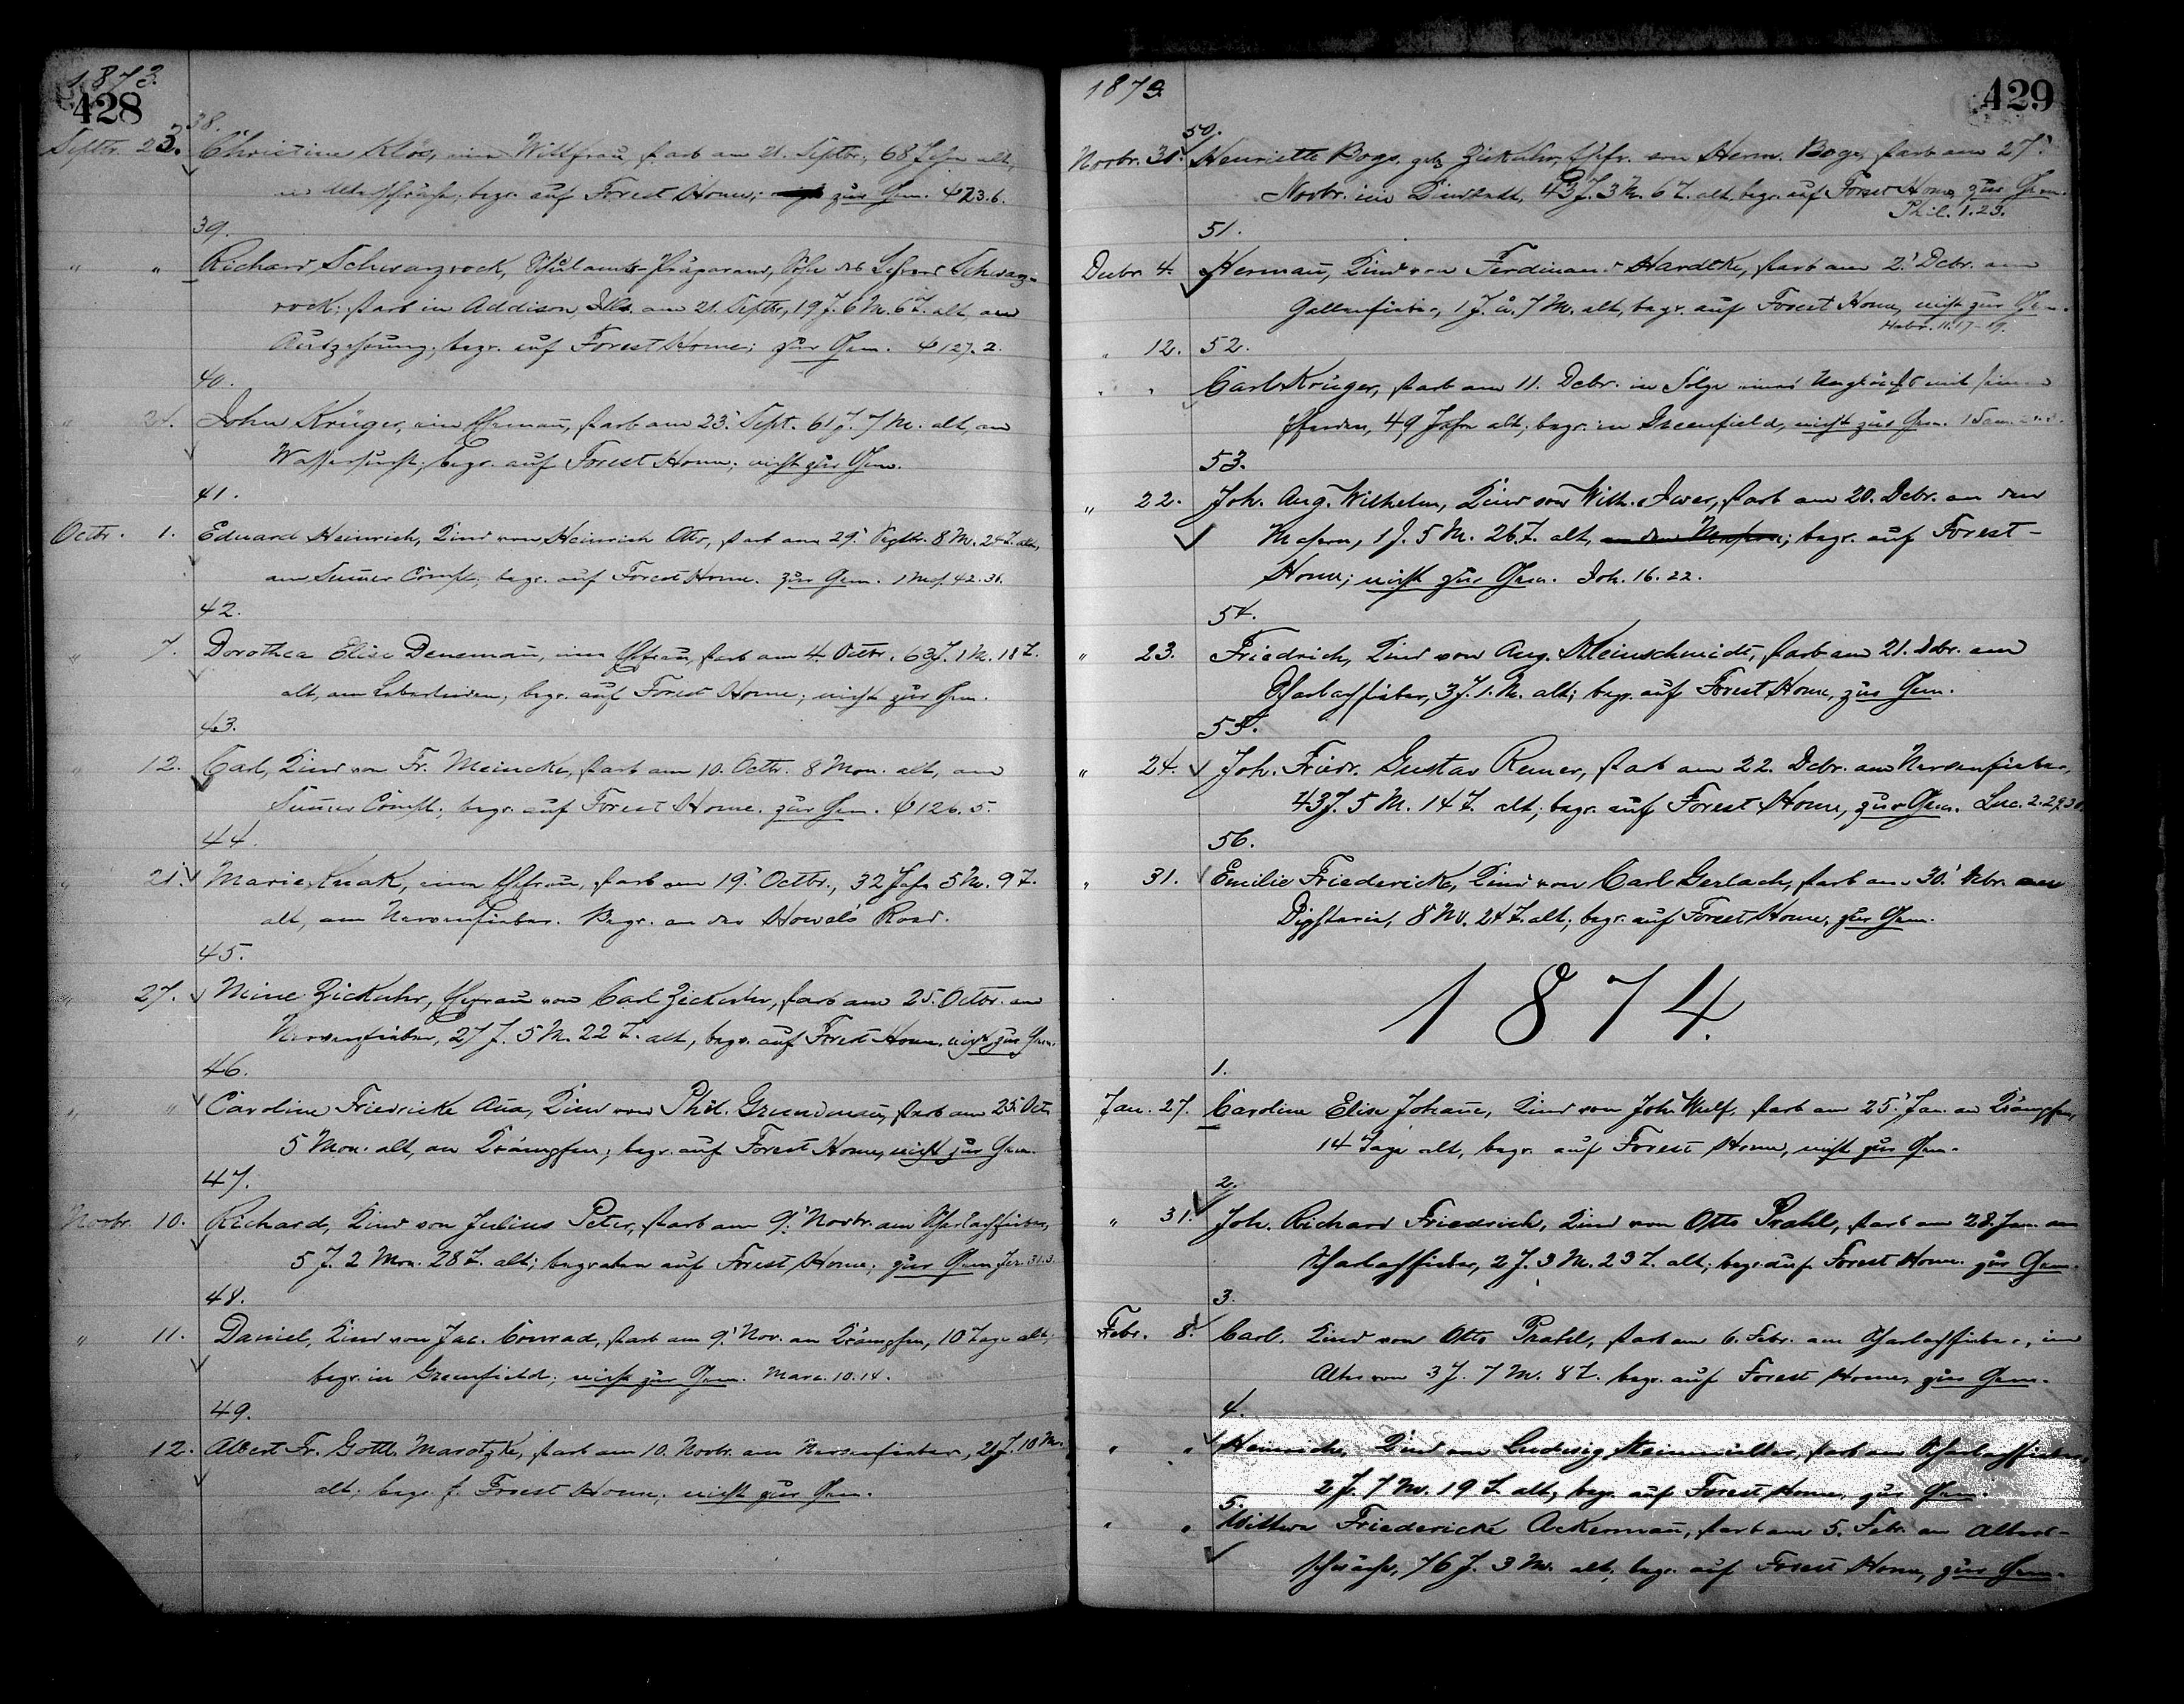 1873.
428
38.
Septbr. 23. Christine Klös, eine Wittfrau, starb am 21. Septbr., 68 Jahr alt,
an Altersschwäche; begr. auf Forest Home; zur Gem. ψ 23.6.
39.
" " Richard Schwarzrock, Schulamts-Präparand, Sohn des Lehrers Schwarz-
rock; starb in Addison, Ills. am 21. Septbr., 19 J. 6 M. 6 T. alt, an
Auszehrung; begr. auf Forest Home; zur Gem. ψ 127.2.
40.
" 24. John Krüger, ein Ehemañ, starb am 23. Sept. 61 J. 7 M. alt, an
Wassersucht; begr. auf Forest Home; nicht zur Gem.
41.
Octbr. 1. Eduard Heinrich, Kind von Heinrich Otto, starb am 29. Septbr. 8 M. 24 T. alt,
am Sum̄er Compl.; begr. auf Forest Home. zur Gem. 1 Mos. 42.36.
42.
" 7. Dorothea Elise Denemañ, eine Ehefrau, starb am 4. Octbr., 63 J. 1 M. 18 T.
alt, am Leberleiden; begr. auf Forest Home; nicht zur Gem.
43.
" 12. Carl, Kind von Fr. Meincke, starb am 10. Octbr. 8 Mon. alt, am
Sum̄er Compl.; begr. auf Forest Home. zur Gem. ψ 126.5.
44.
" 21. Marie Knak, eine Ehefrau, starb am 19. Octbr., 32 Jahr 5 M. 9 T.
alt, am Nervenfieber. Begr. an der Howel's Road.
45.
" 27. Mine Zickuhr, Ehefrau von Carl Zickuhr, starb am 25. Octbr. am
Nervenfieber, 27 J. 5 M. 22 T. alt, begr. auf Forest Home. nicht zur Gem.
46.
" " Caroline Friedricke Aña, Kind von Phil. Grundmañ, starb am 25. Oct.
5 Mon. alt, an Krämpfen; begr. auf Forest Home, nicht zur Gem.
47.
Novbr. 10. Richard, Kind von Julius Peter, starb am 9. Novbr. am Scharlachfieber,
5 J. 2 Mon. 28 T. alt; begraben auf Forest Home; zur Gem. Jer. 31.3.
48.
" 11. Daniel, Kind von Jac. Conrad, starb am 9. Nov. an Krämpfen, 10 Tage alt;
begr. in Greenfield; nicht zur Gem. Marc. 10.14.
49.
" 12. Albert Fr. Gottl. Marotzke, starb am 10. Novbr. am Nervenfieber, 21 J. 10 Mon.
alt; begr. f. Forest Home; nicht zur Gem.
1873
429
50.
Novbr. 30. Henriette Boge, geb. Zickuhr, Ehefr. von Herm. Boge, starb am 27.
Novbr. im Kindbett, 43 J. 3 M. 6 T. alt, begr. auf Forest Home, zur Gem.
Phil. 1.23.
51.
Decbr. 4. Hermañ, Kind von Ferdinand Hardtke, starb am 2. Dcbr. am
Gallenfieber, 1 J. u. 7 M. alt, begr. auf Forest Home, nicht zur Gem.
Hebr. 11.17-19.
" 12. 52.
" " Carl Krüger, starb am 11. Dcbr. in Folge eines Unglücks mit seinen
Pferden, 49 Jahr alt; begr. in Greenfield, nicht zur Gem. 1 Sam.
53.
" 22. Joh. Aug. Wilhelm, Kind von Wilh. Iwer, starb am 20. Debr. an den
Masern, 1 J. 5 M. 26 T. alt, an den Masern; begr. auf Forest-
Home; nicht zur Gem. Joh. 16.22.
54.
" 23. Friedrich, Kind von Aug. Kleinschmidt, starb am 21. Debr. am
Scharlachfieber, 3 J. 1. M. alt; begr. auf Forest Home, zur Gem.
55.
" 24. Joh. Friedr. Gustav Remer, starb am 22. Dcbr. am Nervenfieber,
43 J. 5 M. 14 T. alt; begr. auf Forest Home, zur Gem. Luc. 2.29.30
56.
" 31. Emilie Friedericke, Kind von Carl Gerlach, starb am 30. Debr. an
Diphteria, 8 M. 24 T. alt; begr. auf Forest Home, zur Gem.
1874.
1.
Jan. 27. Caroline Elise Johañe, Kind von Joh. Wulf, starb am 25. Jan. an Krämpfen,
14 Tage alt, begr. auf Forest Home, nicht zur Gem.
2.
" 31. Joh. Richard Friedrich, Kind von Otto Prahl, starb am 28. Jan. am
Scharlachfieber, 2 J. 3 M. 23 T. alt; begr. auf Forest Home. zur Gem.
3.
Febr. 8. Carl, Kind von Otto Prahl, starb am 6. Febr. am Scharlachfieber, im
Alter von 3 J. 7 M. 8 T. begr. auf Forest Home, zur Gem.
4.
" " Heinrich, Kind von Ludwig Steinmüller, starb am Scharlachfieber,
2 J. 7 M. 19 T. alt; begr. auf Forest Home, zur Gem.
5.
" " Wittwe Friedericke Ackermañ, starb am 5. Febr. an Alters-
schwäche, 76 J. 3 M. alt; begr. auf Forest Home, zur Gem.